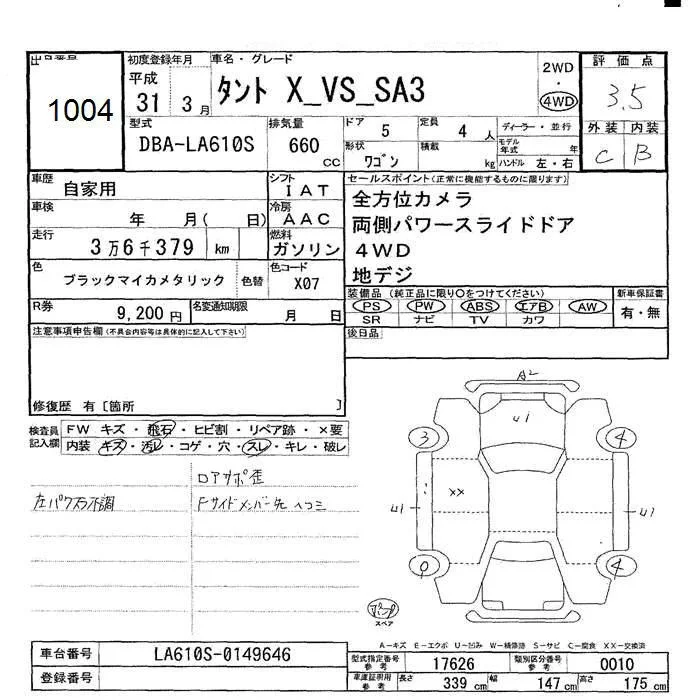 出品番号 初度登録年月 車名・グレード 2WD 評価点
1004 平成 31 3月 タント X_VS_SA3 4WD 3.5
型式 排気量 ドア 5 定員 4 人 ディーラー・並行 外装 内装
DBA-LA610S 660 cc 形状 ワゴン 積載 kg モデル年式 年 ハンドル 左・右 C B
車歴 自家用 シフト IAT セールスポイント(正常に機能するものに限ります)
車検 年 月( 日) 冷房 AAC 全方位カメラ
走行 3万6千379 km 燃料 ガソリン 両側パワースライドドア
4WD
色 ブラックマイカメタリック 色替 色コード X07 地デジ
R券 9,200円 名変通知期限 月 日 装備品(純正品に限り○をつけてください) 新車保証書
PS PW ABS エアB AW 有・無
SR ナビ TV カワ
注意事項申告欄(不具合内容等は具体的に記入して下さい) 後日品
修復歴 有[箇所 ]
検査員記入欄 FW キズ・飛石・ヒビ割・リペア跡・×要
内装 キズ・汚レ・コゲ・穴・スレ・キレ・破レ
ロアサポ歪
左パワスラ不調 Fサイドメンバー先 ヘコミ
A2
U1
3 4
U1 XX U1
0 4
スペア
A-キズ E-エクボ U-凹み W-補修跡 S-サビ C-腐食 XX-交換済
車台番号 LA610S-0149646 型式指定番号 参考 17626 類別区分番号 参考 0010
登録番号 車庫証明用 参考 長さ 339 cm 幅 147 cm 高さ 175 cm